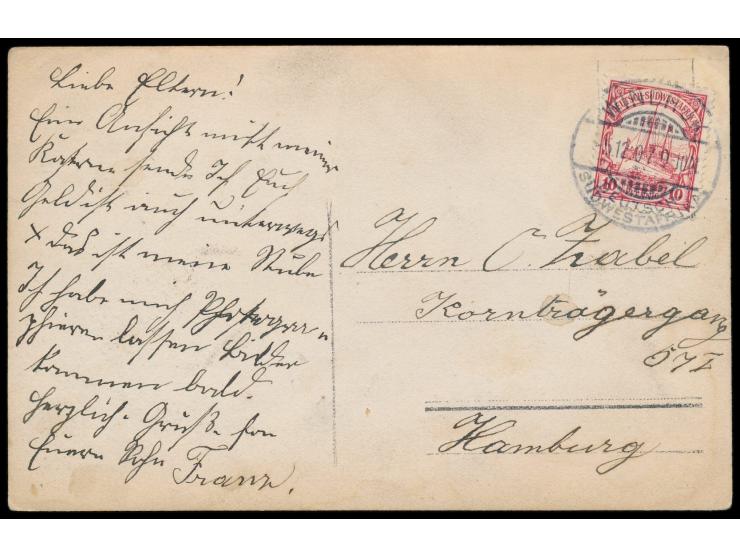 Liebe Eltern!
Eine Ansicht mitt meiner
Katerne sende Ich Euch
Geld ist auch unterwegs
x das ist meine Stube
Ich habe mich Photogra=
phieren lassen Bilder
kommen bald.
Herzlich. Gruß. fon
Euern Sohn Franz.
DEUTSCH-SÜDWESTAFRIKA
12.07.9-10V.
10 10
DEUTSCH-
SÜDWESTAFRIKA
Herrn C. Zabel
Kornträgergang
57 I
Hamburg